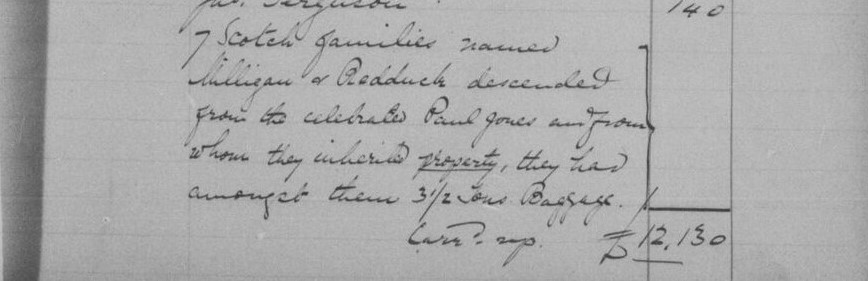 Jas. Ferguson 140
7 Scotch families named
Milligan & Radduck descended
from the celebrated Paul Jones and from
whom they inherited property, they had
amongst them 3 1/2 Tons Baggage.
Carrd. up. £ 12,130